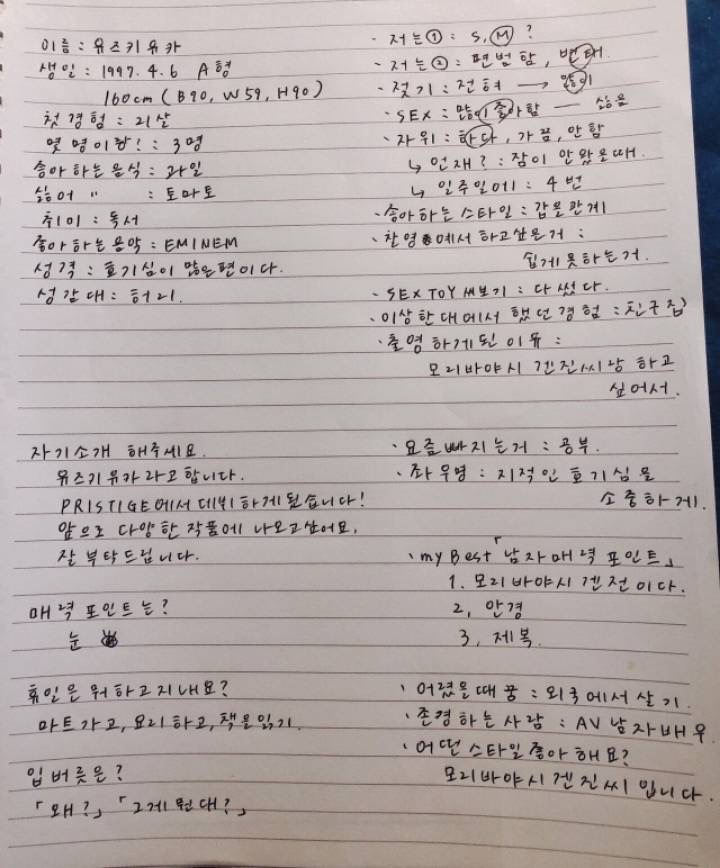 이름 : 유즈키유카
생일 : 1997. 4. 6 A형
160cm ( B90, W59, H90 )
첫경험 : 21살
몇 명이랑? : 3명
송아하는음식 : 과일
싫어 〃 : 토마토
취미 : 독서
좋아하는음악 : EMINEM
성격 : 호기심이 많은편이다.
성감대 : 허리.
· 저는① : S, M ?
· 저는② : 편범함, 변태.
· 젖기 : 전혀 → 많이
· SEX : 많이 좋아함 — 싫음
· 자위 : 하다, 가끔, 안함
↳ 언재? : 잠이 안왔온때.
↳ 일주일에 : 4번
· 송아하는 스타일 : 갑온관계
· 찬영에서 하고싶은거 :
쉽게못하는거.
· SEX TOY 써보기 : 다 썼다.
· 이상한대에서 했던경험 : 친구집
· 촬영하게된 이유 :
모리바야시 겐진씨랑 하고
싶어서.
자기소개 해주세요.
유즈키유카라고합니다.
PRISTIGE에서 데뷔하게됬습니다!
앞으로 다양한 작품에 나오고싶어요.
잘 부탁드립니다.
매력포인트는?
눈
휴일은 뭐하고지내요?
마트가고, 요리하고, 책을읽기.
입버릇은?
「왜?」 「그게뭔대?」
· 요즘빠지는거 : 공부.
· 좌우명 : 지적인 호기심을
소중하게.
· my Best 「남자매력 포인트」
1. 모리바야시겐전이다.
2, 안경
3, 제복
· 어렸을때꿈 : 외국에서살기.
· 존경하는사람 : AV남자배우.
· 어떤스타일좋아해요?
모리바야시겐진씨입니다.